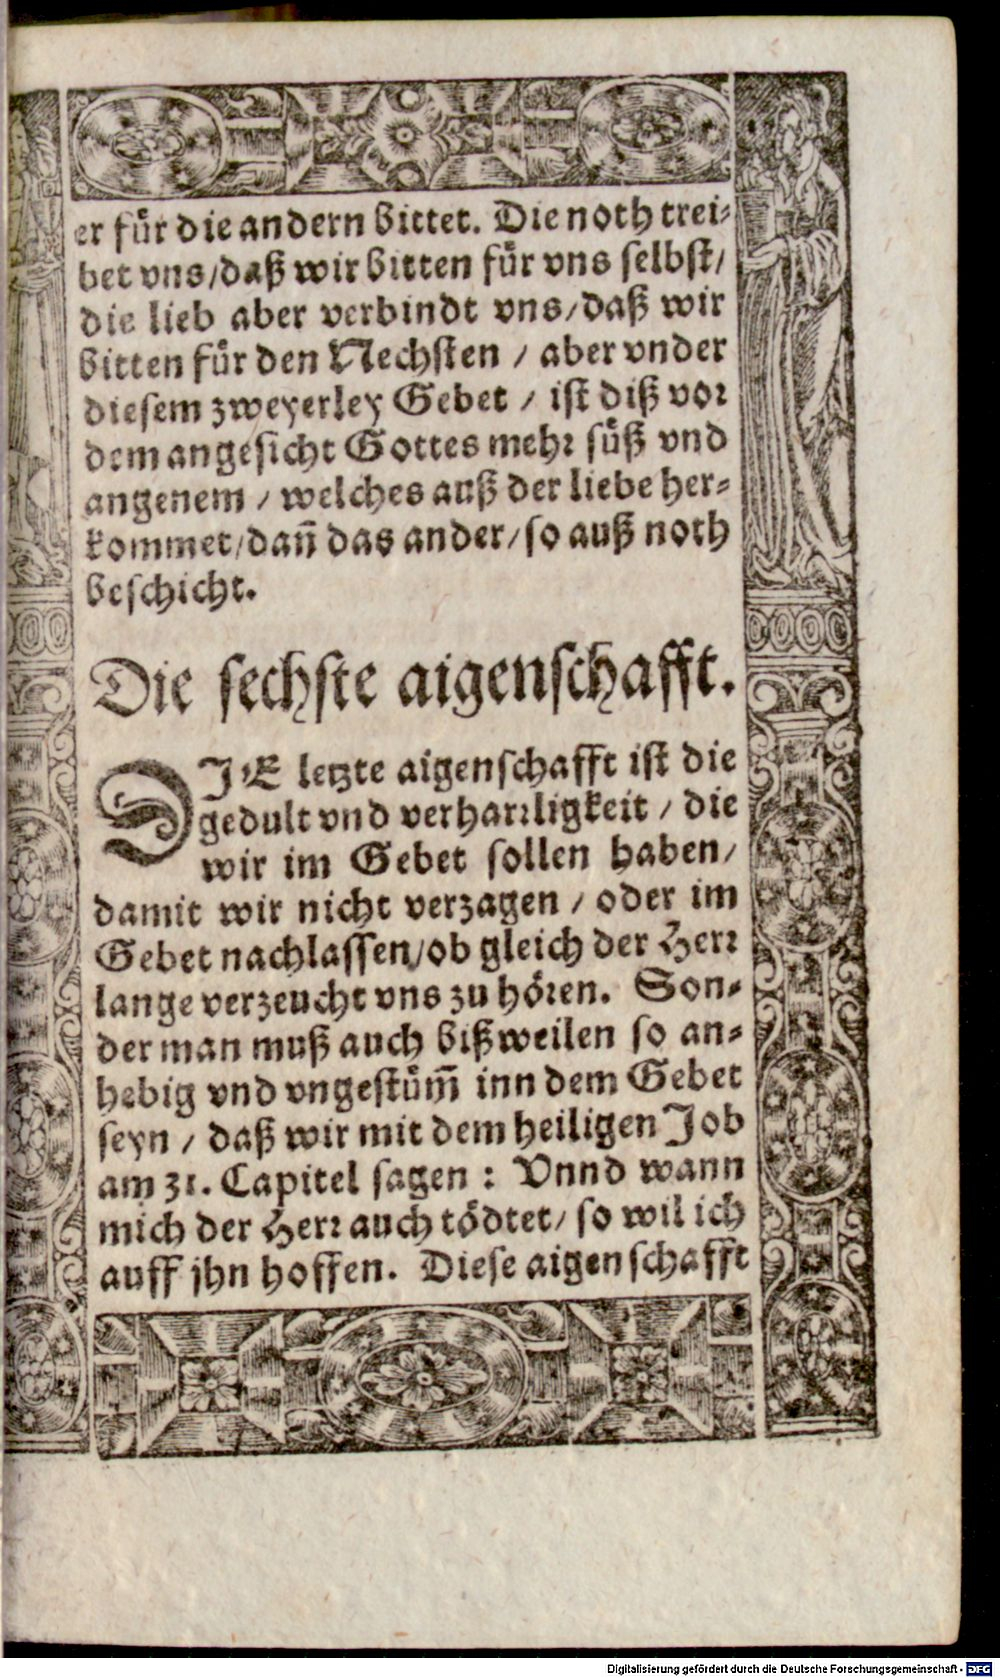 er fuͤr die andern bittet. Die noth trei⸗
bet vns/daß wir bitten fuͤr vns selbst/
die lieb aber verbindt vns/daß wir
bitten fuͤr den Nechsten / aber vnder
diesem zweyerley Gebet / ist diß vor
dem angesicht Gottes mehr suͤß vnd
angenem / welches auß der liebe her⸗
kommet/dañ das ander/so auß noth
beschicht.
Die sechste aigenschafft.
DIE letzte aigenschafft ist die
gedult vnd verharrligkeit / die
wir im Gebet sollen haben/
damit wir nicht verzagen / oder im
Gebet nachlassen/ob gleich der Herr
lange verzeucht vns zu hoͤren. Son⸗
der man muß auch bißweilen so an⸗
hebig vnd vngestuͤm̃ inn dem Gebet
seyn / daß wir mit dem heiligen Job
am 31. Capitel sagen : Vnnd wann
mich der Herr auch toͤdtet/ so wil ich
auff jhn hoffen. Diese aigenschafft
Digitalisierung gefördert durch die Deutsche Forschungsgemeinschaft - DFG